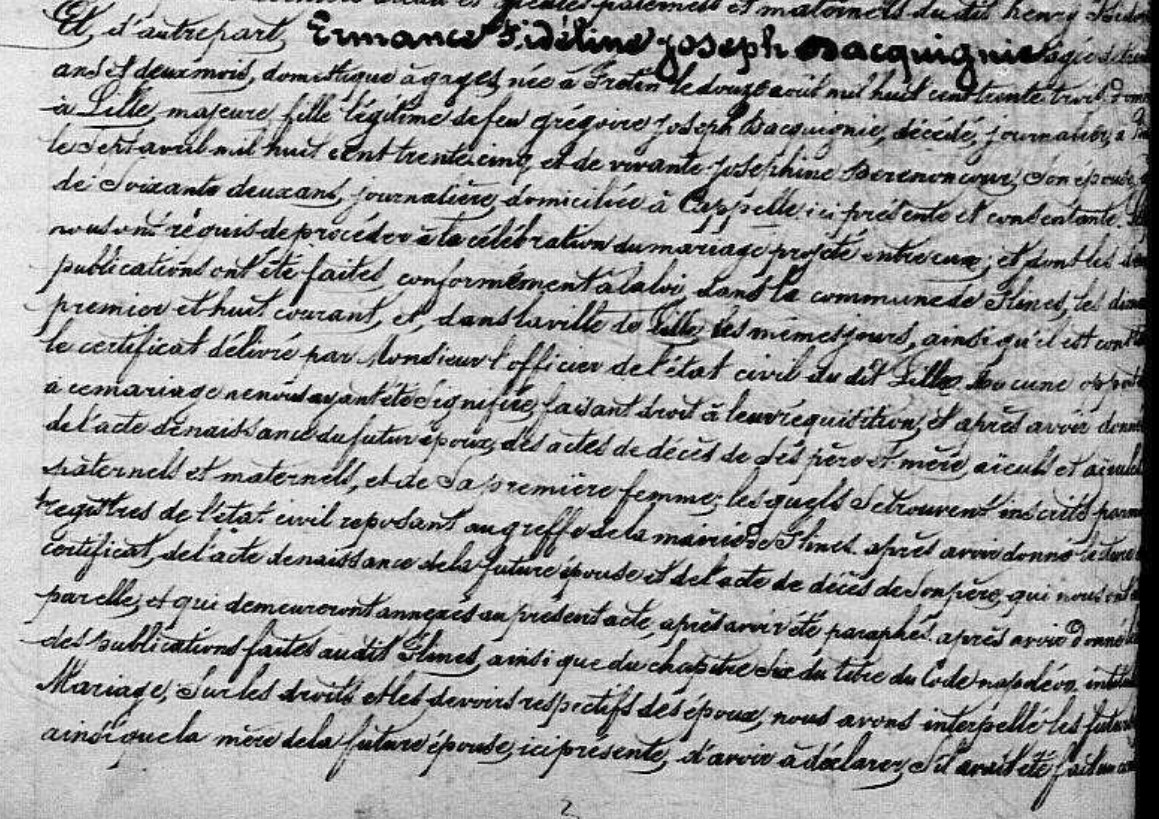 aïeuls paternels et maternels du dit henry
Et, d'autre part, Ermance Fidéline Joseph Dacquignie âgée de trente
ans et deux mois, domestique à gages, née à Fretin le douze août mil huit cent trente trois
à Lille, majeure, fille légitime de feu grégoire Joseph Dacquignie, décédé, journalier, à
le sept avril mil huit cent trente cinq et de vivante Joséphine Derenoncour, son épouse,
de Soixante deux ans, journalière, domiciliée à Cappelle, ici présente et consentante.
nous ont réquis de procéder à la célébration du mariage projeté entre eux; et dont les
publications ont été faites, conformément à la loi, dans la commune de Flines, les
premier et huit courant, et, dans la ville de Lille, les mêmes jours, ainsi qu'il est
le certificat délivré par Monsieur l'officier de l'état civil du dit Lille. Aucune
à ce mariage ne nous ayant été Signifiée, faisant droit à leur réquisition, et après avoir donné
de l'acte de naissance du futur époux, des actes de décès de ses père et mère aïeuls et
paternels et maternels, et de Sa première femme; lesquels Se trouvent inscrits
registres de l'état civil reposant au greffe de la mairie de Flines. après avoir donné
certificat, de l'acte de naissance de la future épouse et de l'acte de décès de Son père, qui nous ont
par elle, et qui demeureront annexés au présent acte, après avoir été paraphés. après avoir donné
des publications faites au dit Flines, ainsi que du chapitre Six du titre du Code napoléon,
Mariage, Sur les droits et les devoirs respectifs des époux, nous avons interpellé les futurs
ainsi que la mère de la future épouse, ici présente, d'avoir à déclarer, S'il avait été fait un
2